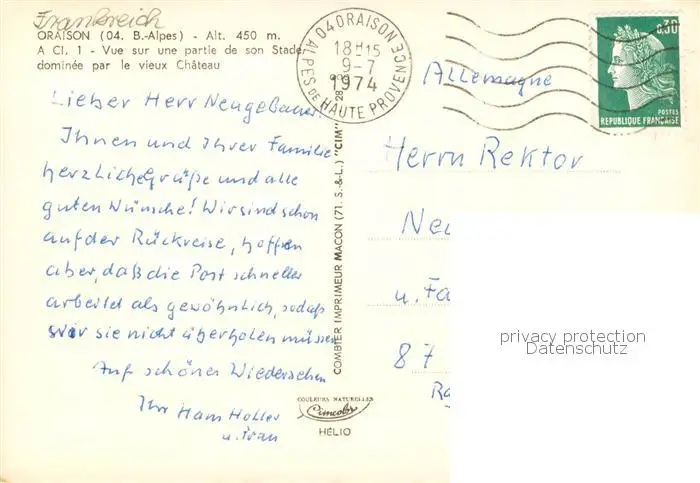 Frankreich
ORAISON (04. B.-Alpes) - Alt. 450 m.
A Cl. 1 - Vue sur une partie de son Stade
dominée par le vieux Château
Lieber Herr Neugebauer!
Ihnen und Ihrer Familie
herzliche Grüße und alle
guten Wünsche! Wir sind schon
auf der Rückreise, hoffen
aber, daß die Post schneller
arbeitet als gewöhnlich, sodaß
wir sie nicht überholen müssen.
Auf schönes Wiedersehen
Ihr Hans Holler
u. Frau
COMBIER IMPRIMEUR MACON (71. S.-&-L.) "CIM"
COULEURS NATURELLES
Cimcolor
HÉLIO
04 ORAISON
18H15
9-7
1974
ALPES DE HAUTE PROVENCE
0,30
POSTES
REPUBLIQUE FRANÇAISE
Allemagne
Herrn Rektor
Neu
u. Fa
87
privacy protection
Datenschutz